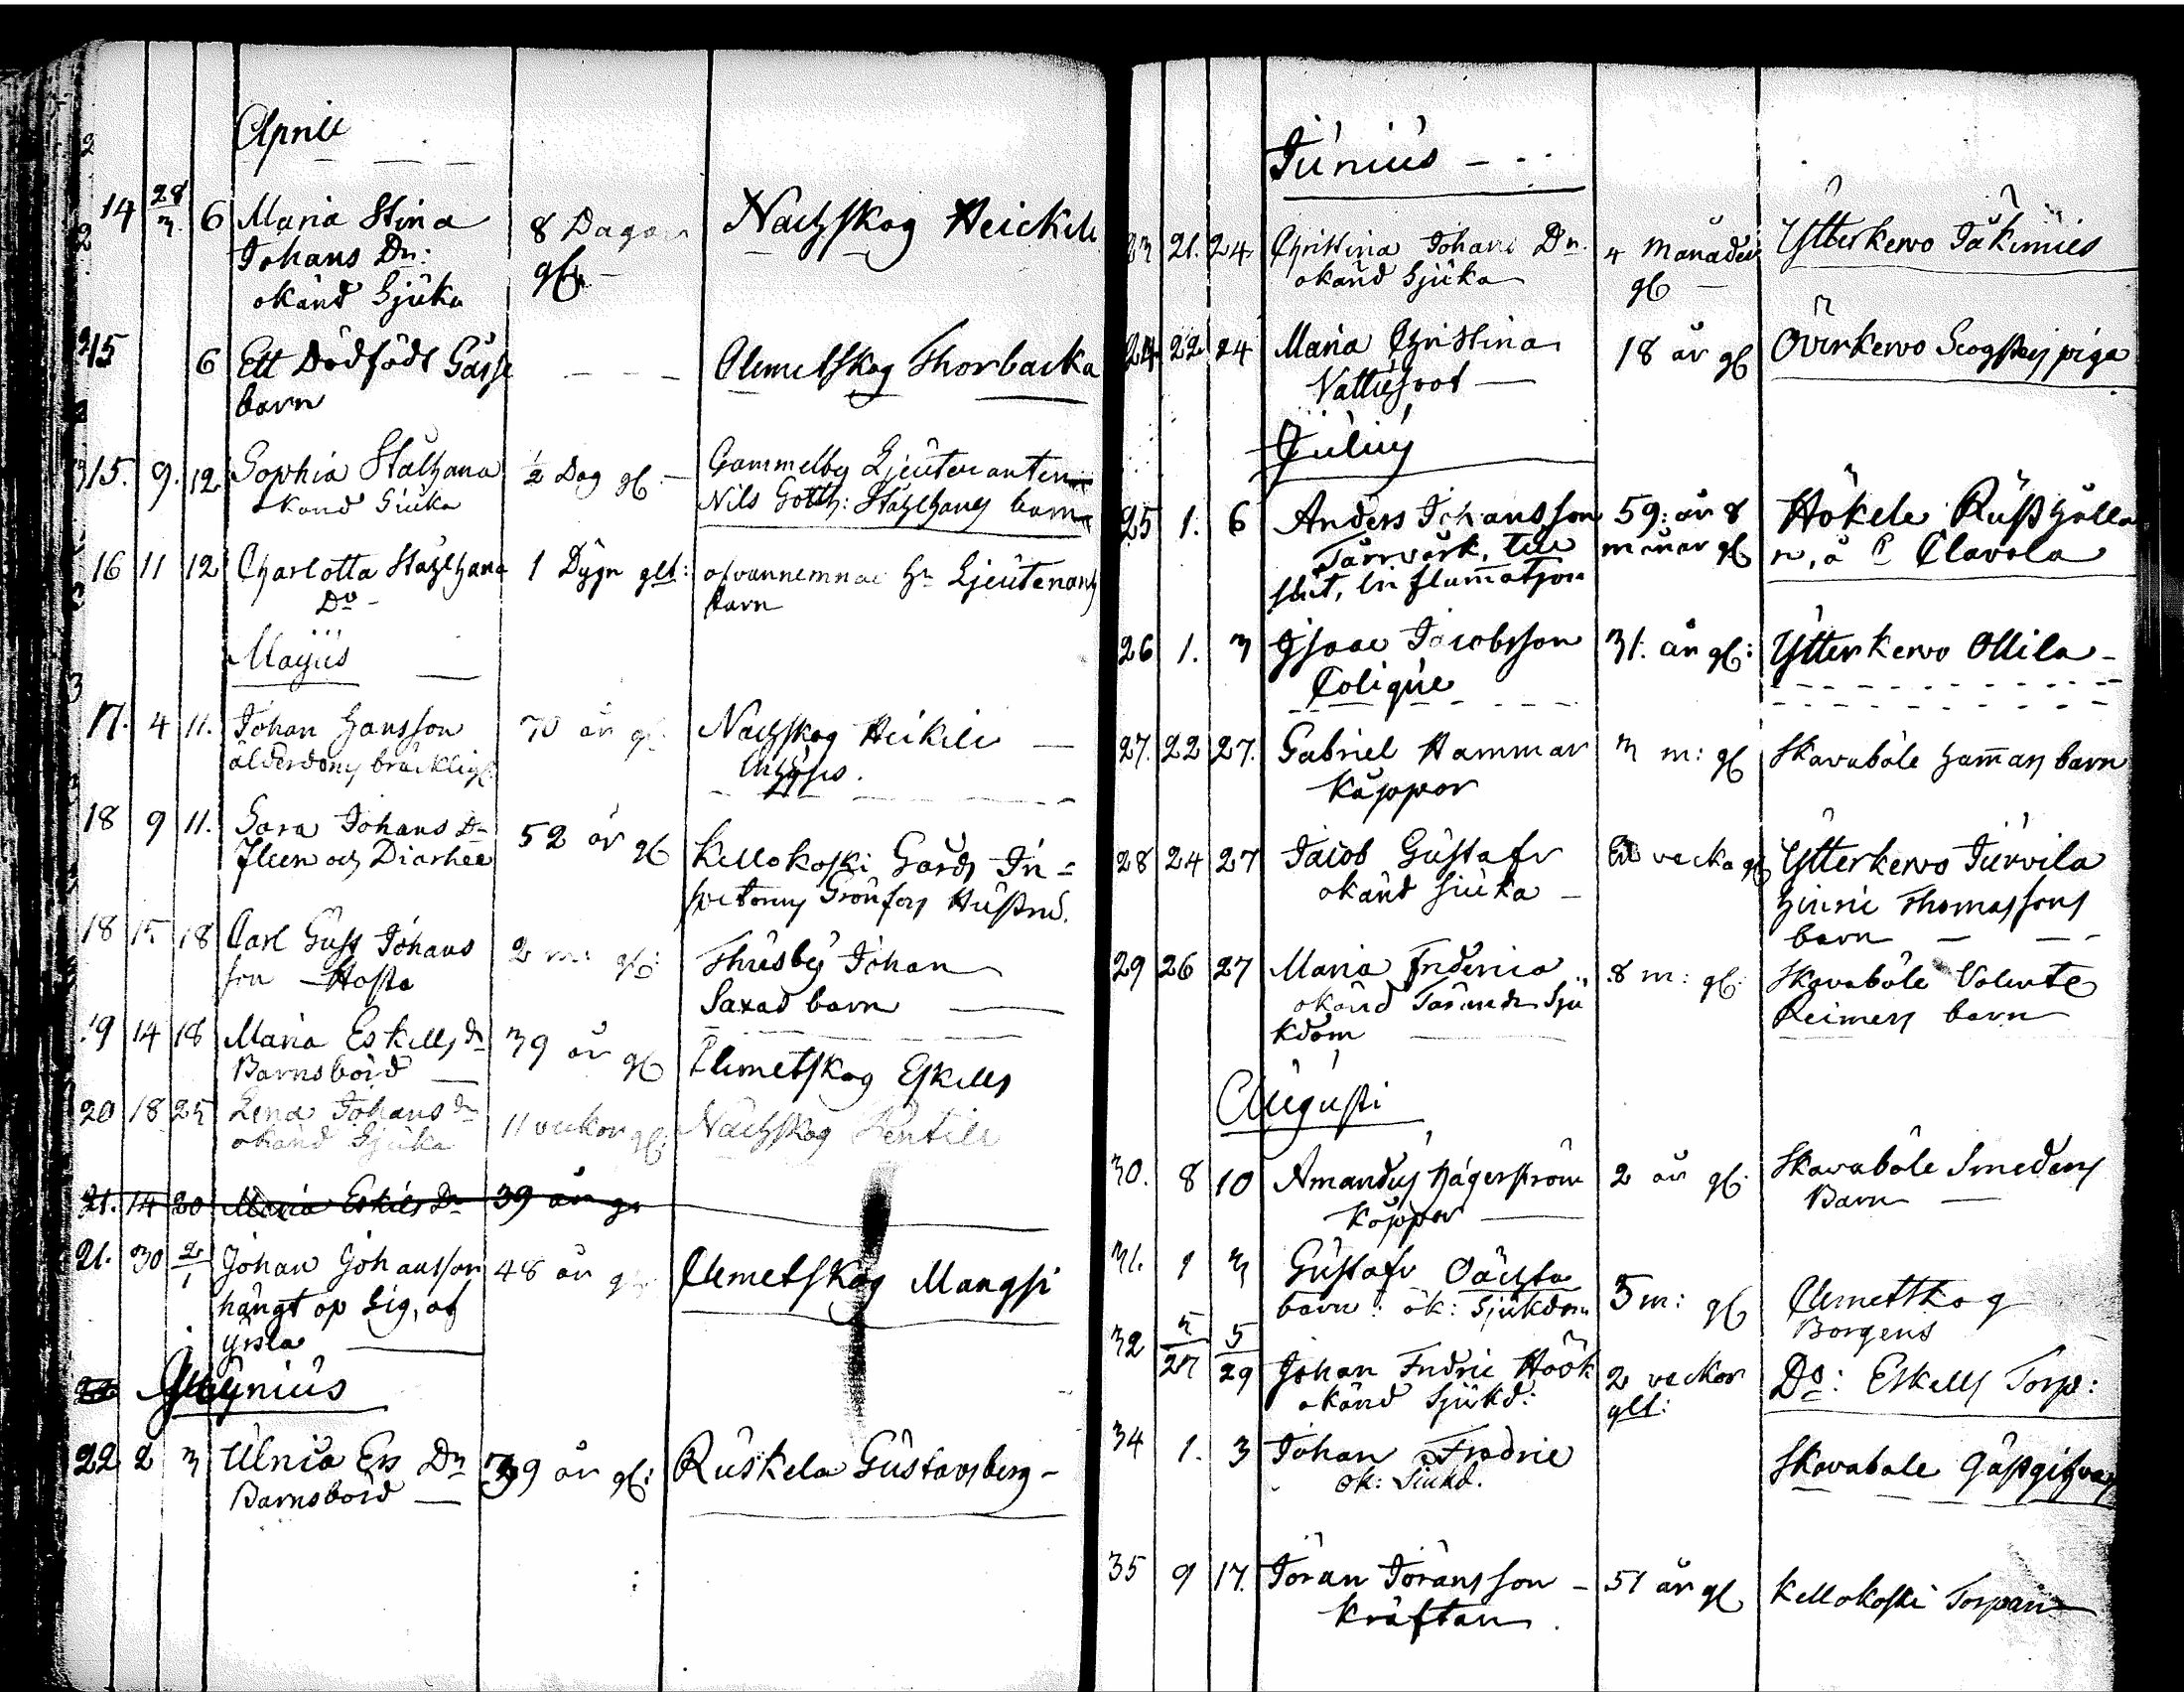 Aprill
14 28/3 6 Maria Stina 8 Dagar Nachskog Heickile
Johans Dr:
okänd Sjuka gl:
15 6 Ett Dödfödt Gåsse — — — Clemetskog Thorbacka
barn
15. 9. 12 Sophia Stålhana ½ Dag gl. — Gammelby Ljeutenanten
okänd Siuka Nils Gotth: Stahlhanes barn
16 11 12 Charlotta Stahlhana 1 Dygn glt: ofvannemnde Hr Ljeutenants
Do - barn
Majus
17. 4 11. Johan Hansson 70 år gl. Nachskog Heikile —
ålderdoms bräckligh:
18 9 11. Sara Johans Dr 52 år gl Kellokoski Gårds In=
Fleen och Diarhee spectorns Grönfors Hustru.
18 15 18 Carl Gust Johans 2 m: gl: Thusby Johan
son — Hosta Saxas barn
19 14 18 Maria Eskills dr 39 år gl Clemetskog Eskills
Barnsbörd
20 18 25 Lena Johans dr 11 veckor gl: Nachskog Pentile
okänd Sjuka
21. 14 20 Maria Eskils Dr 39 år gl
21. 30 2/1 Johan Johansson 48 år gl. Clemetskog Mangsi
hängt op Sig, af
yrsla
Junius
22 2 3 Ulrica Ers Dr 39 år gl: Ruskela Gustavsberg -
Barnsbörd —
Junius - . .
23 21. 24 Christina Johans Dr. 4 Månader Ytterkervo Jäkimies
okänd Sjuka gl —
24 22 24 Maria Christina 18 år gl Överkervo Scogsters piga
Vattusoot —
Julius
25 1. 6 Anders Johansson 59: år 8 Hökele Rusthålla
Tärrvärk, till månar gl n, å Clavola
slut, inflammatjon
26 1. 3 Isaac Jacobsson 31. år gl: Ytterkervo Ollila -
Colique
27. 22 27. Gabriel Hammar 3 m: gl Skavaböle Hammars barn
Kåppor
28 24 27 Jacob Gustafv En vecka gl Ytterkervo Jurvila
okänd siuka — Hinric Thomassons
barn — —
29 26 27 Maria Frederica 8 m: gl. Skavaböle Volunte
okänd Tärande Sju Reimers barn
kdom
Augusti
30. 8 10 Amandus Hägerström 2 år gl. Skavaböle Smedens
Kåppor — Barn —
31. 1 3 Gustafv Oächta 5 m: gl Clemettskog
barn: ok: Sjukdom Borgens
32 5/27 5/29 Johan Fridric Höök 2 veckor Do: Eskills Torp:
okänd Sjukd: glt:
34 1. 3 Johan Fredric Skavabole Gästgifvars
ok: Siukd.
35 9 17. Jöran Jöransson — 51 år gl Kellokoski Torpare
Kräftan.